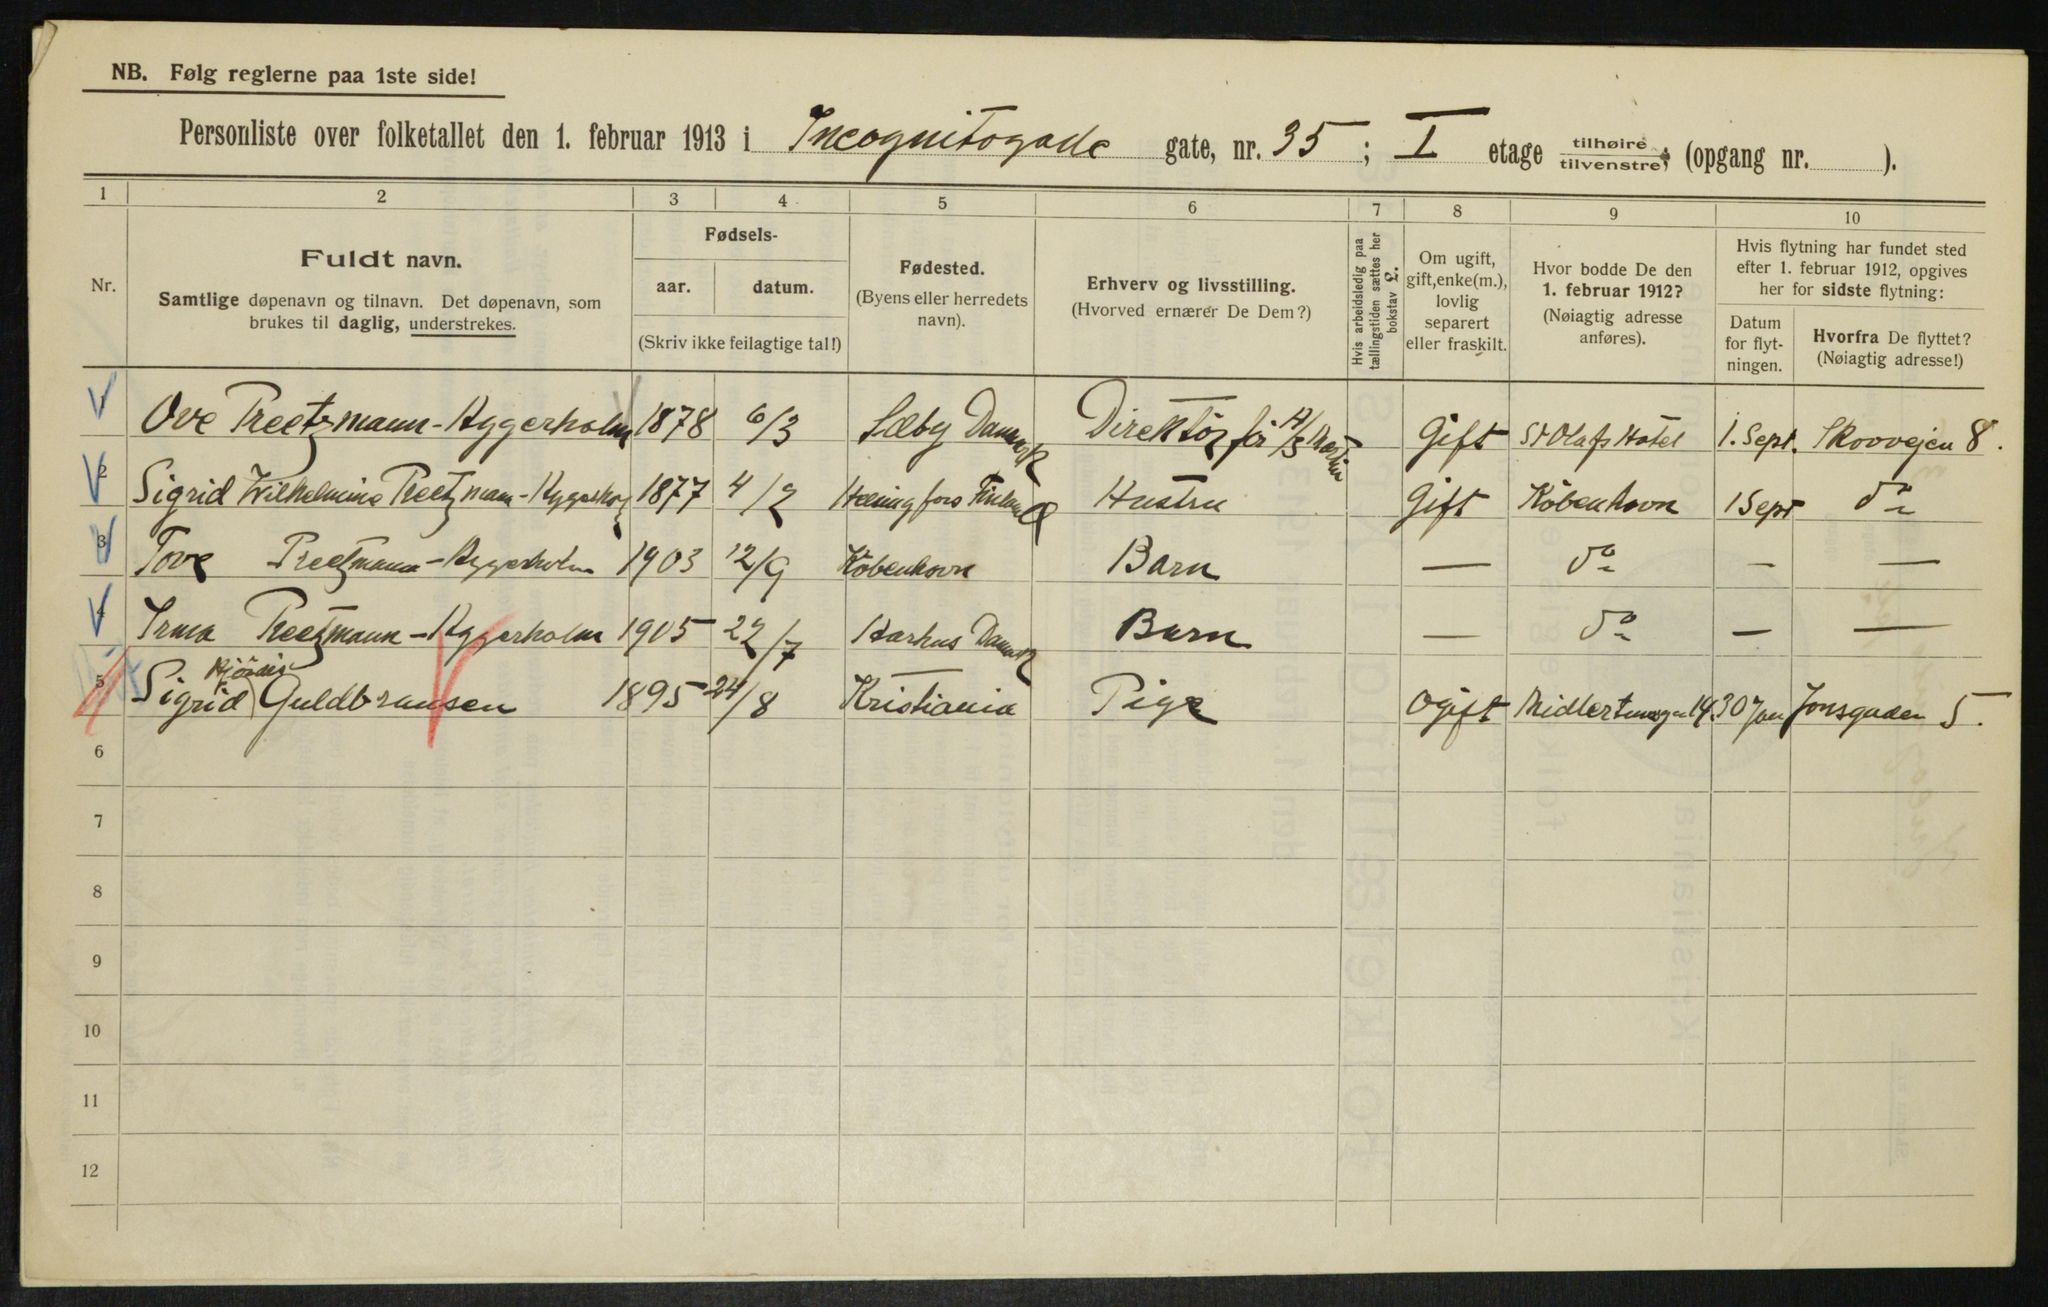 NB. Følg reglerne paa 1ste side!
Personliste over folketallet den 1. februar 1913 i Incognitogade gate, nr. 35; I etage tilhøire tilvenstre; (opgang nr. ).
1 2 3 4 5 6 7 8 9 10
Nr.
Fuldt navn.
Samtlige døpenavn og tilnavn. Det døpenavn, som
brukes til daglig, understrekes.
Fødsels-
aar. datum.
(Skriv ikke feilagtige tal!)
Fødested.
(Byens eller herredets
navn).
Erhverv og livsstilling.
(Hvorved ernærer De Dem?)
Hvis arbeidsledig paa
tællingstiden sættes her
bokstav L.
Om ugift,
gift, enke(m.),
lovlig
separert
eller fraskilt.
Hvor bodde De den
1. februar 1912?
(Nøiagtig adresse
anføres).
Hvis flytning har fundet sted
efter 1. februar 1912, opgives
her for sidste flytning:
Datum
for flyt-
ningen.
Hvorfra De flyttet?
(Nøiagtig adresse!)
1 Ove Preetzmann-Aggerholm 1878 6/3 Sæby Danmark Direktör for Gift St Olafs Hotel 1. Sept. Skovvejen 8.
2 Sigrid Wilhelmine Preetzmann- 1877 4/2 Helsingfors Finland Hustru Gift Köbenhavn 1 Sept do
3 Tove Preetzmann-Aggerholm 1903 12/9 Köbenhavn Barn — do — —
4 Irma Preetzmann-Aggerholm 1905 22/7 Aarhus Danmark Barn — do — —
Hjördis
5 Sigrid Guldbransen 1895 24/8 Kristiania Pige Ugift 14. 30 Jan Jonsgaden 5.
6
7
8
9
10
11
12